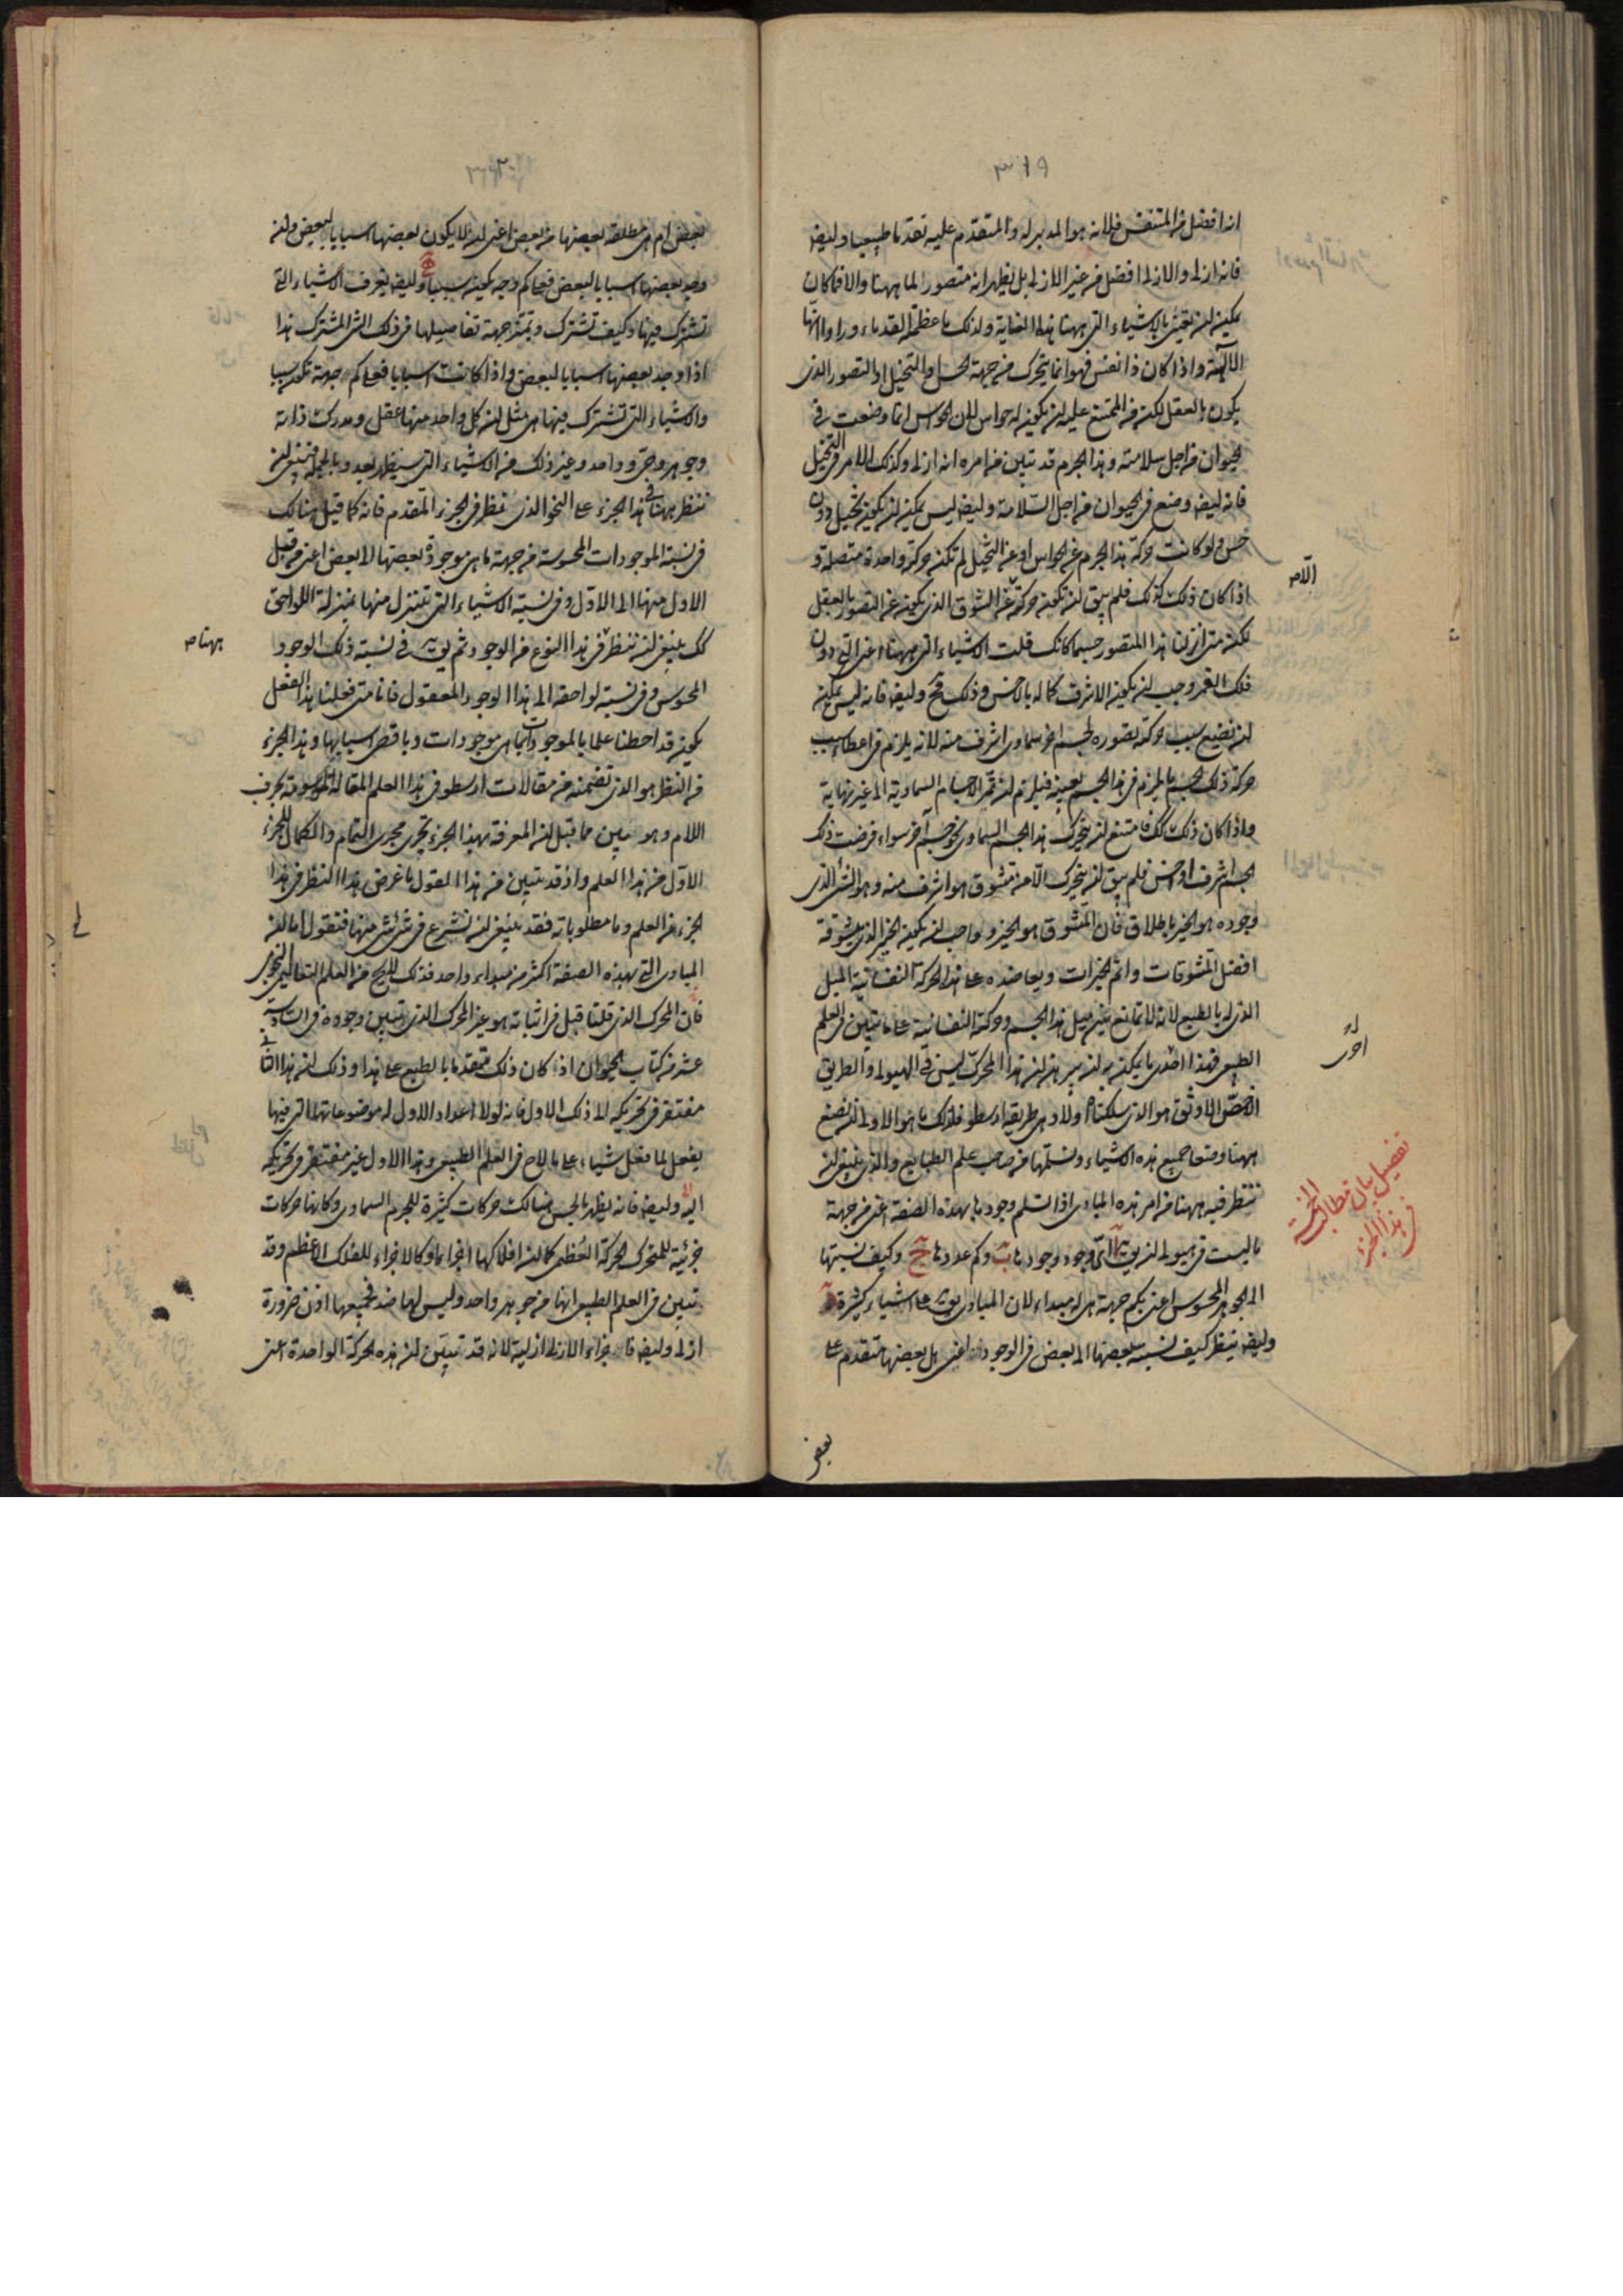 انه افضل من المتنفس فلانه هو المدبر له والمتقدم عليه تقدما طبيعيا وايضا
فانه ازلى والازلى افضل من غير الازلى بل يظهر انه متصور لما ههنا والا فما كان
يمكن ان يعتنى بالاشياء التى ههنا هذه العناية ولذلك ما عظمه القدماء وراوا انها
الآلهة واذا كان ذا نفس فهو انما يتحرك من جهة الحس او التخيل او التصور الذى
يكون بالعقل لكنه من الممتنع عليه ان يكون له حواس لان الحواس انما وضعت فى
الحيوان من اجل سلامته وهذا الجرم قد تبين من امره انه ازلى وكذلك الامر فى التخيل
فانه ايضا وضع فى الحيوان من اجل السلامة وايضا ليس يمكن ان يكون تخيل دون
حس ولو كانت حركة هذا الجرم عن الحواس او عن التخيل لم تكن حركة واحدة متصلة و
اذا كان ذلك كذلك فلم يبق ان تكون حركته الا عن الشوق الذى يكون عن التصور بالعقل
لكن متى انزلنا هذا المتصور جسما كانك قلت الاشياء التى ههنا اعنى التى دون
فلك القمر وجب ان يكون الاشرف كماله بالاخس وذلك مح وايضا فانه ليس يمكن
ان نضع سبب حركته تصوره لجسم اخر سماوى اشرف منه لانه يلزم فى اعطاء سبب
حركة ذلك الجسم ما يلزم فى هذا الجسم بعينه فيلزم ان تمر الاجسام السماوية الى غير نهاية
واذا كان ذلك كك فامتنع ان يتحرك هذا الجسم السماوى نحو جسم آخر سواء فرضت ذلك
الجسم اشرف او اخس فلم يبق ان يتحرك الا عن متشوق هو اشرف منه وهو الشئ الذى
وجوده هو الخير باطلاق فان المتشوق هو الخير وواجب ان يكون الخير الذى يتشوقه
افضل المتشوقات واتم الخيرات ويعاضده على هذه الحركة النفسانية الميل
الذى له بالطبع لانه لا تمانع بين ميل هذا الجسم وحركته النفسانية على ما تبين فى العلم
الطبيعى فهذا احد ما يمكن به ان يبرهن ان هذا المحرك ليس فى الهيولى والطريق
الاخص الاوثق هو الذى سلكناه اولا وهى طريقة ارسطو فلذلك ما هو الاولى ان نضع
ههنا وضعا جميع هذه الاشياء ونتسلمها من صاحب علم الطبايع والذى ينبغى ان
ننظر فيه ههنا من امر هذه المبادى اذا تسلم وجودها بهذه الصفة اعنى من جهة
ما ليست فى هيولى ان اى وجود وجودها وكم عددها وكيف نسبتها
الى الجوهر المحسوس اعنى بكم جهة هى له مبداء لان المبادى يق على اشياء كثيرة
وايضا ينظر كيف نسبة بعضها الى بعض فى الوجود اعنى هل بعضها متقدم على
بعض
الا ص
احرى
تفصيل بيان مطالب الخمسة
فى هذا الجزء
بعض ام هى مطلقة بعضها من بعض اعنى ان لا يكون بعضها اسبابا لبعض وان
وجد بعضها اسبابا لبعض فعلى كم وجه يكون سببا وايضا يعرف الاشياء التى
تشترك فيها وكيف تشترك وبتم جهة تفاصيلها فى ذلك الشئ المشترك هذا
اذا وجد بعضها اسبابا لبعض واذا كانت اسبابا فعلى كم جهة تكون سببا
والاشياء التى تشترك فيها هى مثل ان كل واحد منها عقل ومدرك ذاته
وجوهر وحى وواحد وغير ذلك من الاشياء التى سيظهر بعد وبالجملة فينبغى ان
ننظر ههنا فى هذا الجزء على النحو الذى ننظر فى الجزء المتقدم فانه كما قيل هنالك
فى نسبة الموجودات المحسوسة من جهة ما هى موجودة بعضها الى بعض اعنى من قبل
الاول منها الى الاول وفى نسبة الاشياء التى تتنزل منها بمنزلة اللواحق
كك ينبغى ان ننظر فى هذا النوع من الوجود ثم فى نسبة ذلك الوجود
المحسوس وفى نسبة لواحقه الى هذا الوجود المعقول فانا متى فعلنا هذا الفعل
يكون قد احطنا علما بالموجودات بما هى موجودات وباقصى اسبابها وهذا الجزء
من النظر هو الذى تضمنه من مقالات ارسطو فى هذا العلم المقالة الموسومة بحرف
اللام وهو بين مما قيل ان المعرفة بهذا الجزء يجرى مجرى التمام والكمال للجزء
الاول من هذا العلم واذ قد تبين من هذا القول ما غرض هذا النظر فى هذا
الجزء من العلم وما مطلوباته فقد ينبغى ان نشرع فى شئ شئ منها فنقول اما ان
المبادى التى بهذه الصفة اكثر من مبداء واحد فذلك يلوح من العلم التعاليمى النجومى
فان المحرك الذى قلنا قبل فى اثباته هو غير المحرك الذى تبين وجوده فى السادسة
عشر من كتاب الحيوان اذ كان ذلك متقدما بالطبع على هذا وذلك ان هذا الثانى
مفتقر فى تحريكه الى ذلك الاول فانه لولا اعداد الاول له موضوعاتها التى فيها
يفعل لما فعل شيئا على ما لاح فى العلم الطبيعى وهذا الاول غير مفتقر فى تحريكه
اليه وايضا فانه يظهر بالحس هنالك حركات كثيرة للجرم السماوى وكانها حركات
جزئية للمتحرك الحركة العظمى كما ان افلاكها اجزاء ما وكالاجزاء للفلك الاعظم وقد
تبين فى العلم الطبيعى انها من جوهر واحد وليس لها ضد فجميعها اذن ضرورة
ازلى وايضا فاجزاء الازلى ازلية لانه قد تبين ان هذه الحركة الواحدة اعنى
ههنا ص